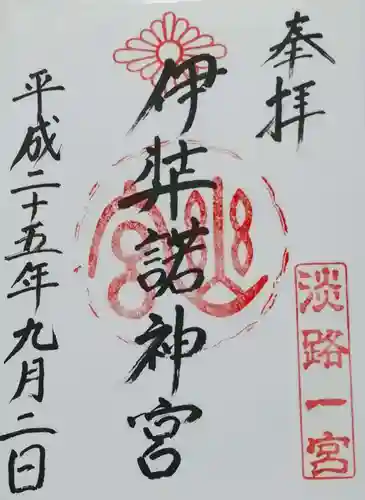 奉拝
淡路一宮
伊弉諾神宮
平成二十五年九月二日